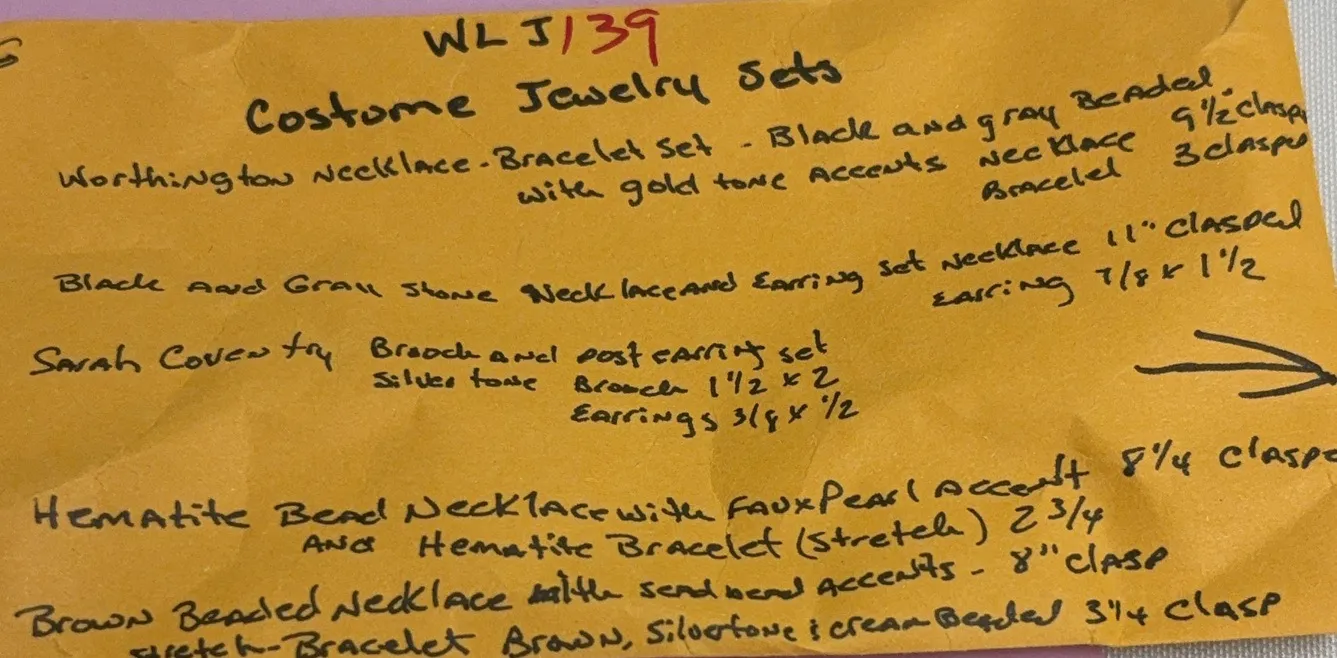 WLJ/139
Costume Jewelry Sets
Worthington Necklace - Bracelet Set - Black and gray Beaded.
with gold tone Accents Necklace 9 1/2 clasp
Bracelet 3 clasped
Black and Gray Stone Necklace and Earring Set Necklace 11" Clasped
Earring 7/8 x 1 1/2
Sarah Coventry Brooch and post earring set
Silver tone Brooch 1 1/2 x 2
Earrings 3/8 x 1/2
Hematite Bead Necklace with Faux Pearl Accent 8 1/4 Clasped
And Hematite Bracelet (Stretch) 2 3/4
Brown Beaded Necklace with bead Accents - 8" clasp
stretch - Bracelet Brown, Silvertone & cream Beaded 3 1/4 Clasp